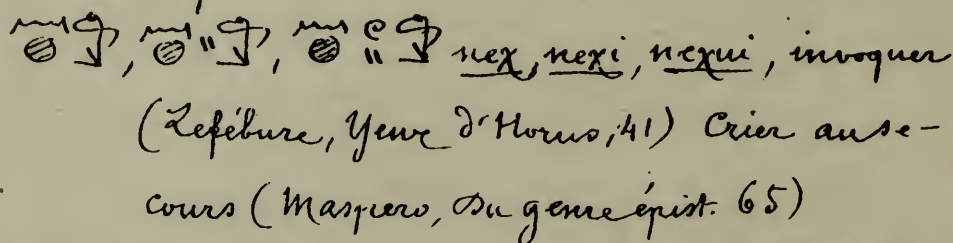 𓈖𓐍𓀁, 𓈖𓐍𓏭𓀁, 𓈖𓐍𓏲𓏭𓀁 neχ, neχi, neχui, invoquer
(Lefébure, Yeux d'Horus, 41) Crier au se-
cours (Maspero, Du genre épist. 65)